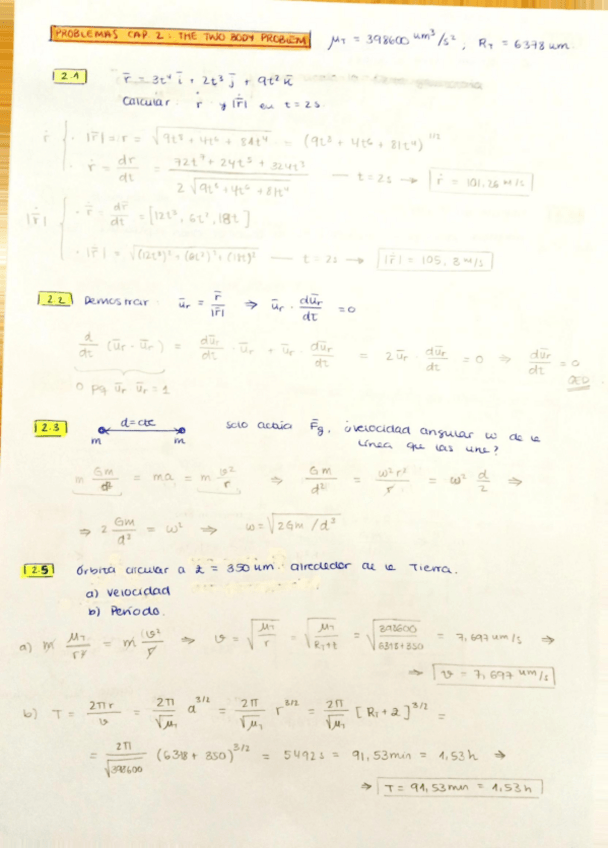 PROBLEMAS CAP 2: THE TWO BODY PROBLEM μ_T = 398600 km³/s², R_T = 6378 km.
2.1 r̄ = 3t⁴ ī + 2t³ j̄ + 9t² k̄
Calcular ṙ y |r̄̇| en t = 2s
ṙ { · |r̄| = r = √(9t⁸ + 4t⁶ + 81t⁴) = (9t⁸ + 4t⁶ + 81t⁴)^1/2
· ṙ = dr/dt = (72t⁷ + 24t⁵ + 324t³) / (2√(9t⁸ + 4t⁶ + 81t⁴)) — t = 2s → ṙ = 101,26 m/s
|r̄̇| { · r̄̇ = dr̄/dt = [12t³, 6t², 18t]
· |r̄̇| = √((12t³)² + (6t²)² + (18t)²) — t = 2s → |r̄̇| = 105,8 m/s
2.2 Demostrar ū_r = r̄/|r̄| ⇒ ū_r · dū_r/dt = 0
d/dt (ū_r · ū_r) = dū_r/dt · ū_r + ū_r · dū_r/dt = 2ū_r · dū_r/dt = 0 ⇒ dū_r/dt = 0
0 pq ū_r ū_r = 1 QED
2.3 d = cte solo actúa F̄_g, ¿velocidad angular ω de la
m m línea que las une?
m Gm/d² = ma = m v²/r ⇒ Gm/d² = ω² r²/r = ω² d/2 ⇒
⇒ 2 Gm/d³ = ω² ⇒ ω = √(2Gm/d³)
2.5 Órbita circular a z = 350 km alrededor de la Tierra.
a) velocidad
b) Período.
a) m μ_T/r² = m v²/r ⇒ v = √(μ_T/r) = √(μ_T/(R_T+z)) = √(398600/(6378+350)) = 7,697 km/s ⇒
⇒ v = 7,697 km/s
b) T = 2πr/v = 2π/√μ_T a^3/2 = 2π/√μ_T r^3/2 = 2π/√μ_T [R_T + z]^3/2 =
= 2π/√398600 (6378 + 350)^3/2 = 5492 s = 91,53 min = 1,53 h ⇒
⇒ T = 91,53 min = 1,53 h